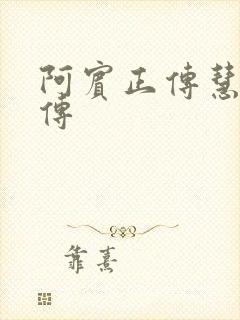 阿賓正傳慧
傳
靠熹